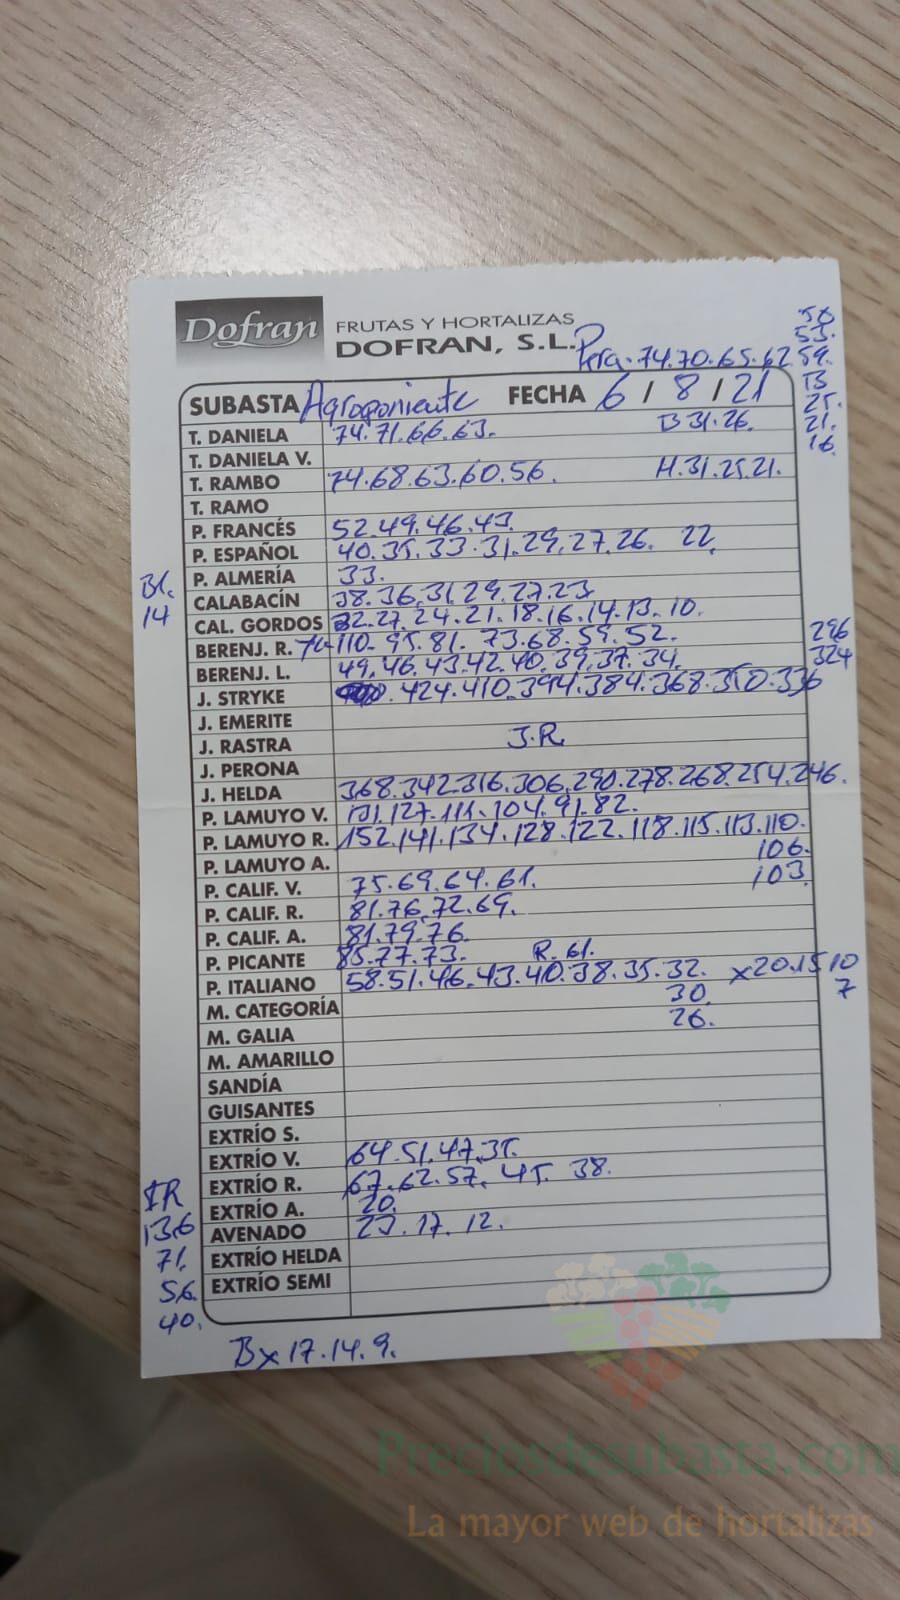 Dofran FRUTAS Y HORTALIZAS
DOFRAN, S.L.
Pera.74.70.65.62.59.
53.
SUBASTA Agroponiente FECHA 6 / 8 / 21
B
25.
21.
16.
T. DANIELA 74.71.66.63. B 31.26.
T. DANIELA V.
T. RAMBO 74.68.63.60.56. H.31.25.21.
T. RAMO
P. FRANCÉS 52.49.46.43.
P. ESPAÑOL 40.35.33.31.29.27.26. 22.
P. ALMERÍA 33.
Bl.
14
CALABACÍN 38.36.31.29.27.23.
CAL. GORDOS 32.27.24.21.18.16.14.13.10.
BERENJ. R. 110.95.81.73.68.59.52.
BERENJ. L. 49.46.43.42.40.39.37.34.
296
324
J. STRYKE 424.410.394.384.368.350.336
J. EMERITE
J. RASTRA J.R.
J. PERONA
J. HELDA 368.342.316.306.290.278.268.254.246.
P. LAMUYO V. 131.127.111.104.91.82.
P. LAMUYO R. 152.141.134.128.122.118.115.113.110.
106.
103.
P. LAMUYO A.
P. CALIF. V. 75.69.64.61.
P. CALIF. R. 81.76.72.69.
P. CALIF. A. 81.79.76.
P. PICANTE 85.77.73. R. 61.
P. ITALIANO 58.51.46.43.40.38.35.32. x20.15.10
7
30.
26.
M. CATEGORÍA
M. GALIA
M. AMARILLO
SANDÍA
GUISANTES
EXTRÍO S.
EXTRÍO V. 64.51.47.35.
EXTRÍO R. 67.62.57.45.38.
EXTRÍO A. 20.
AVENADO 23.17.12.
EXTRÍO HELDA
EXTRÍO SEMI
136
71.
56.
40.
Bx17.14.9.
Preciosdesubasta.com
La mayor web de hortalizas